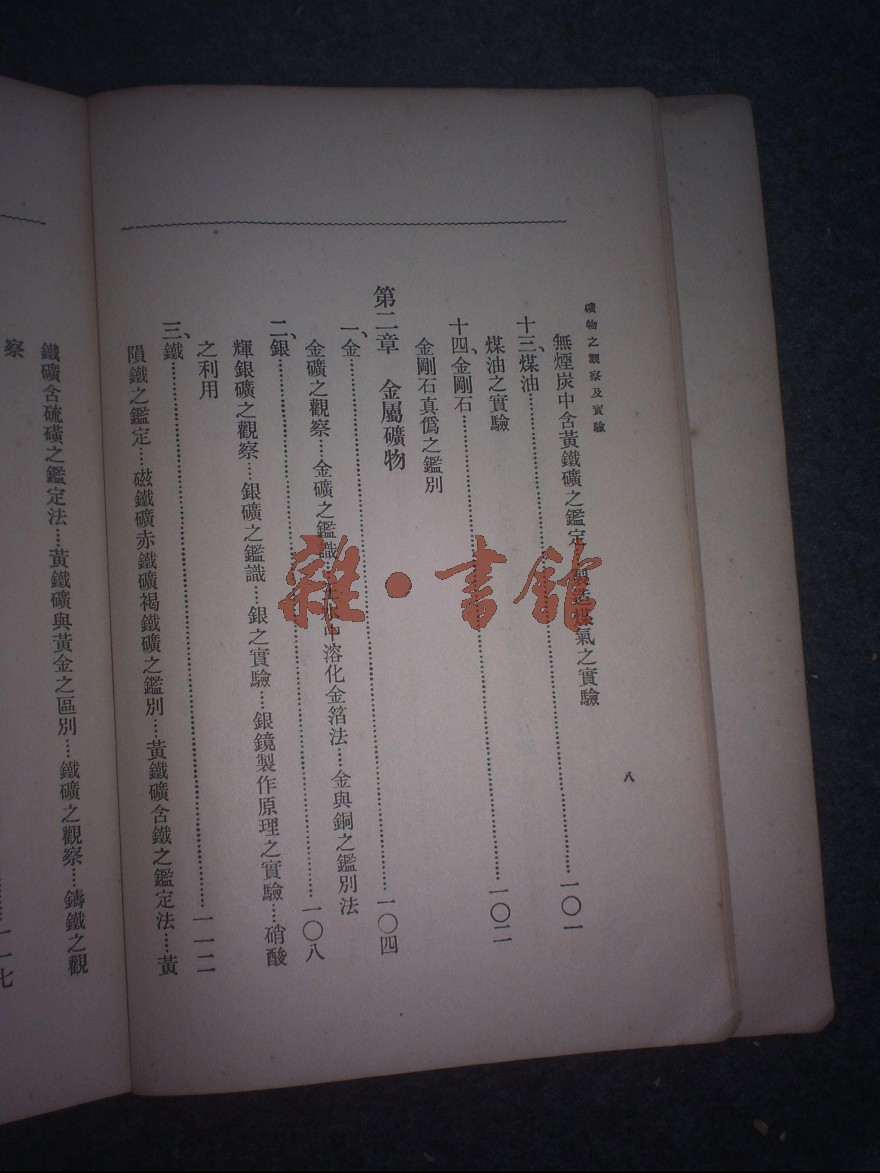 礦物之觀察及實驗
八
無煙炭中含黃鐵礦之鑑定…製造煤氣之實驗
十三、煤油……一〇一
煤油之實驗
十四、金剛石……一〇二
金剛石真僞之鑑別
第二章 金屬礦物
一、金……一〇四
金礦之觀察…金礦之鑑識…王水中溶化金箔法…金與銅之鑑別法
二、銀……一〇八
輝銀礦之觀察…銀礦之鑑識…銀之實驗…銀鏡製作原理之實驗…硝酸
之利用
三、鐵……一一二
隕鐵之鑑定…磁鐵礦赤鐵礦褐鐵礦之鑑別…黃鐵礦含鐵之鑑定法…黃
鐵礦含硫磺之鑑定法…黃鐵礦與黃金之區別…鐵礦之觀察…鑄鐵之觀
察
一一七
雜·書館